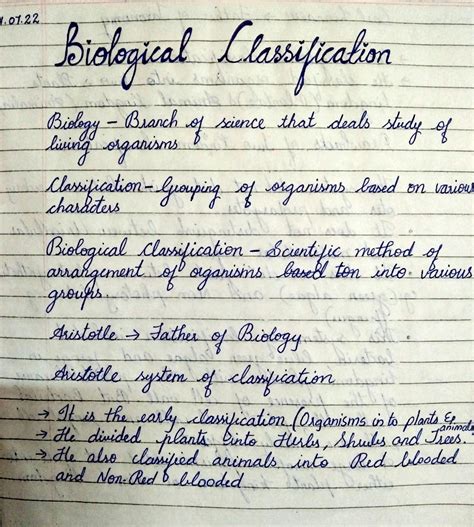 .07.22
Biological Classification
Biology – Branch of science that deals study of
living organisms
Classification – Grouping of organisms based on various
characters
Biological Classification – Scientific method of
arrangement of organisms based ton into various
groups.
Aristotle → Father of Biology
Aristotle system of classification
→ It is the early classification (Organisms in to plants & animals
→ He divided plants into Herbs, Shrubs and Trees.
→ He also classified animals into Red blooded
and Non-Red blooded